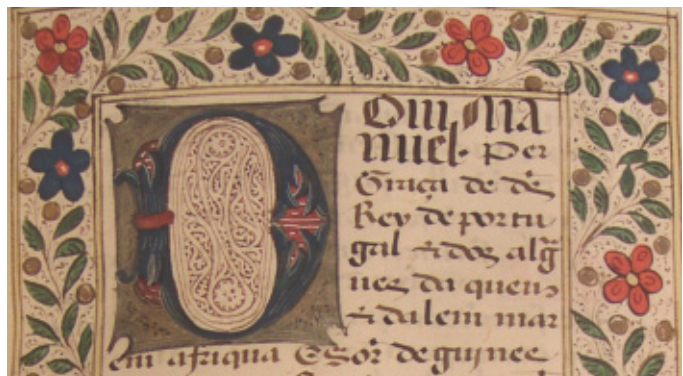 Dom Ma
nuel. Per
Graça de ds̃
Rey de portu
gal ⁊ dos alg̃
ues da quem
⁊ dalem mar
em afriqua Sñor de guinee